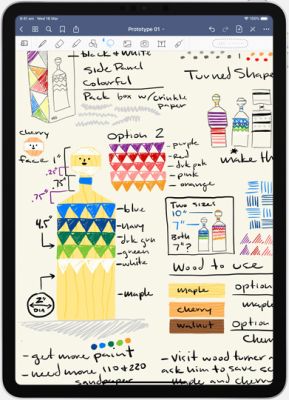 9:41 am Wed 18 Mar
100%
Prototype 01
black & white
side Panel
Colourful
Pack box w/crinkle
paper
Turned Shape
cherry
face
1"
.25"
.75"
.75"
4.5"
2"
DIA
Option 2
purple
Red
drk pnk
pink
orange
make th
blue
navy
drk grn
green
white
maple
Two sizes
10"
7"
Both
7"?
Wood to use
maple
cherry
walnut
option
maple
Option
Cherr
- get more paint
- need more 110 & 220
sandpaper
- Visit wood turner
ask him to save sc
maple and cherry